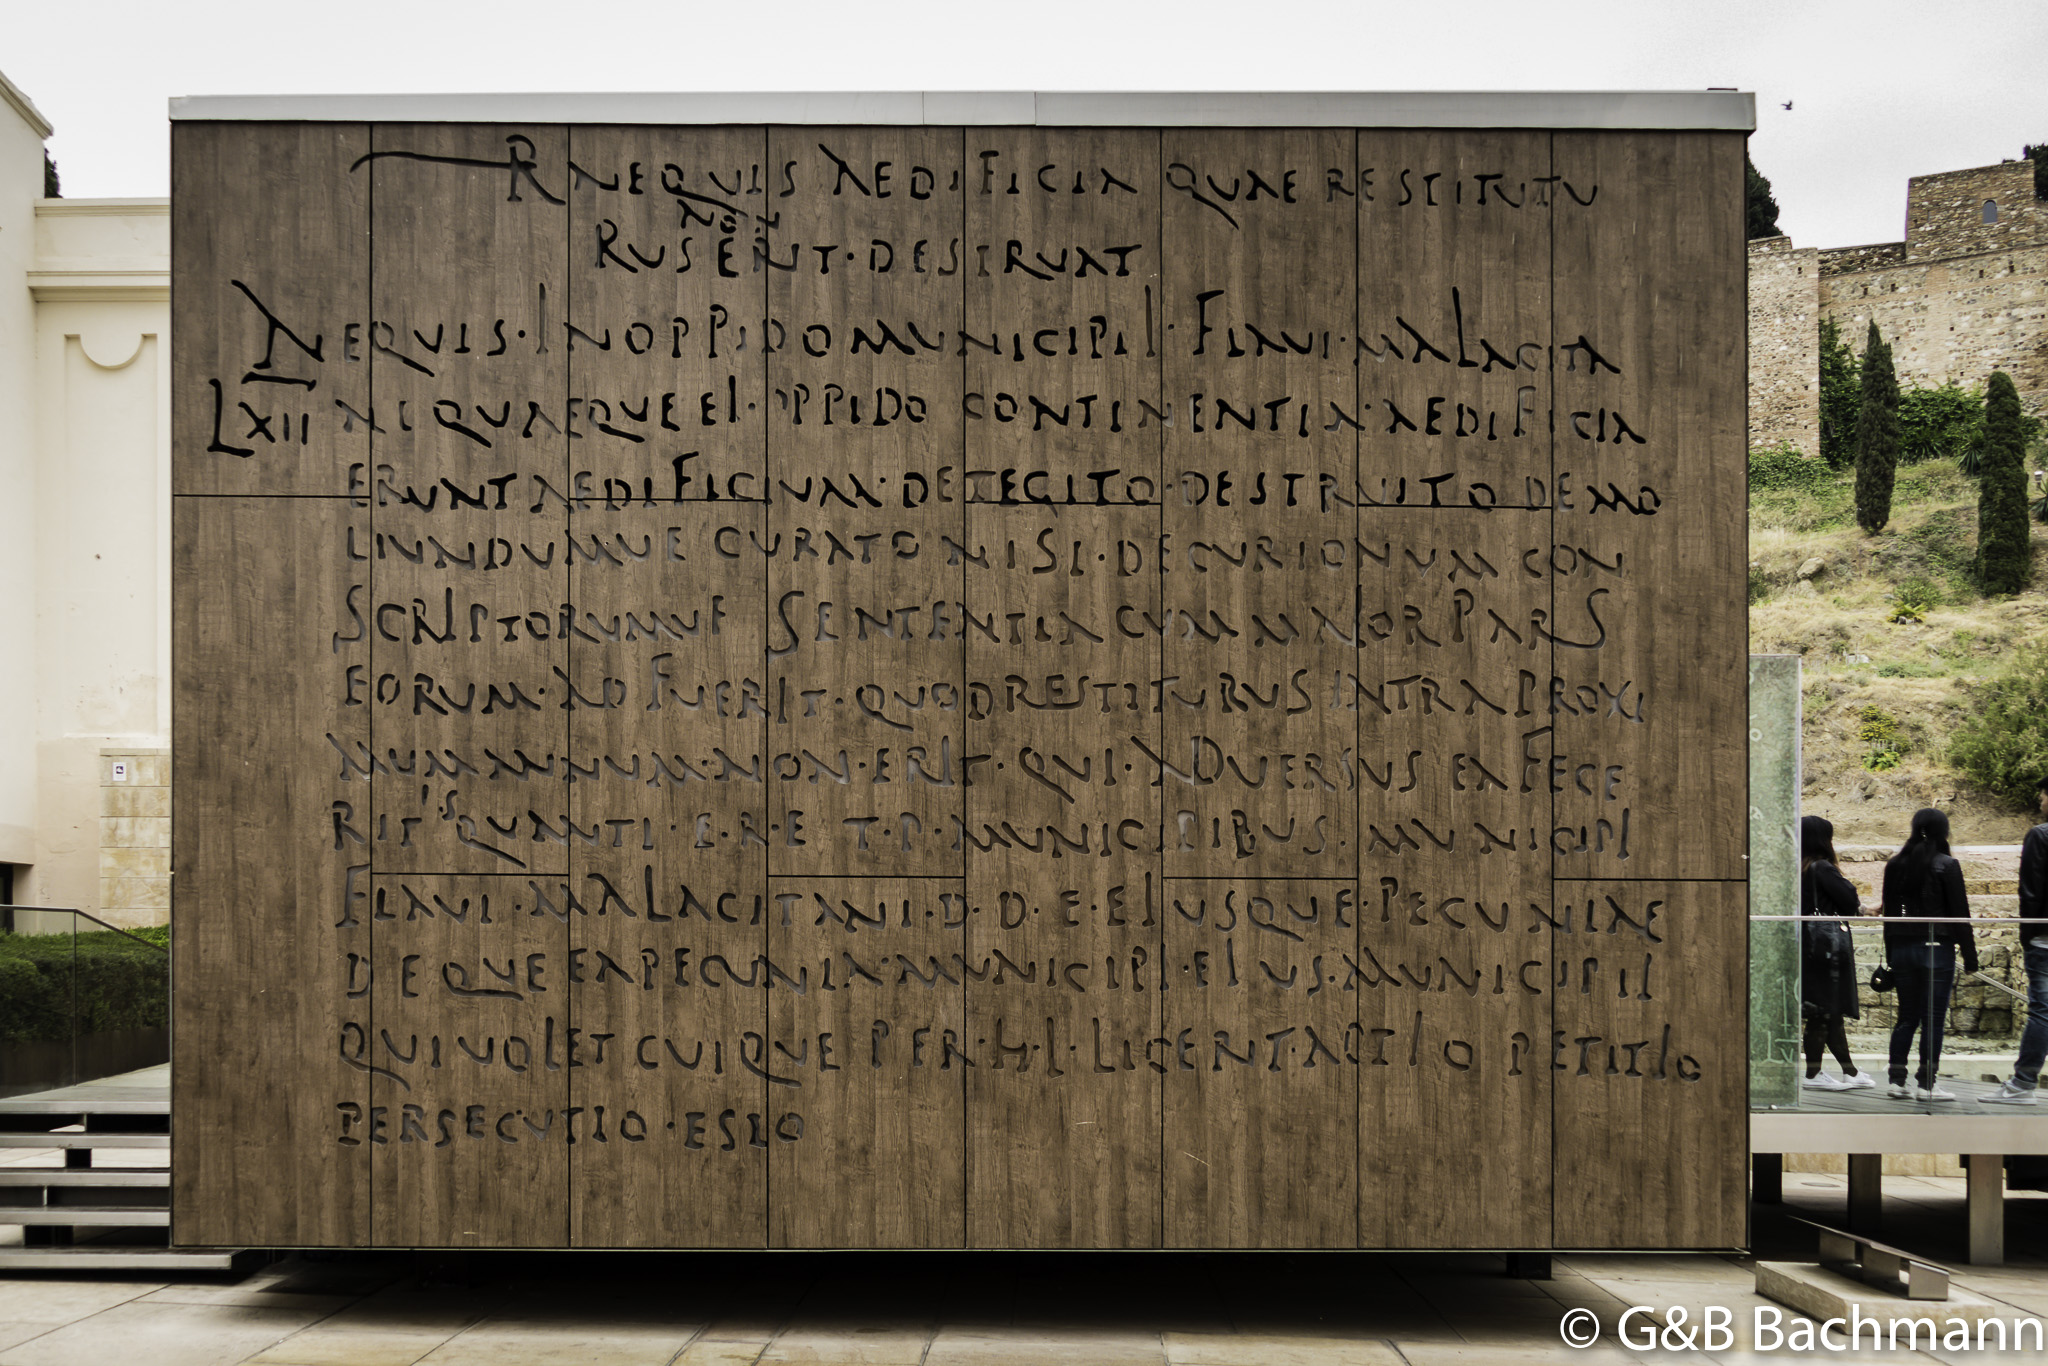 R NEQUIS AEDIFICIA QUAE RESTITUTU
NON
RUS ERIT · DESTRUAT
NEQUIS · IN OPPIDO MUNICIPII · FLAVI · MALACITA
LXII NI QUAEQUE EI · OPPIDO CONTINENTIA · AEDIFICIA
ERUNT AEDIFICIUM · DETEGITO · DESTRUITO DEMO
LIUNDUMUE CURATO NISI · DECURIONUM CON
SCRIPTORUMUE SENTENTIA CUM MAIOR PARS
EORUM · AD FUERIT · QUOD RESTITURUS INTRA PROXI
MUM ANNUM · NON · ERIT · QUI · ADVERSUS EA FECE
RIT 'S QUANTI · E · R · E T · P · MUNICIPIBUS · MUNICIPI
FLAVI · MALACITANI · D · D · E · EIUSQUE · PECUNIAE
DEQUE EA PECUNIA · MUNICIPI · EIUS · MUNICIPII
QUI VOLET CUIQUE PER · H · L · LICEBIT · ACTIO PETITIO
PERSECUTIO · ESTO
© G&B Bachmann